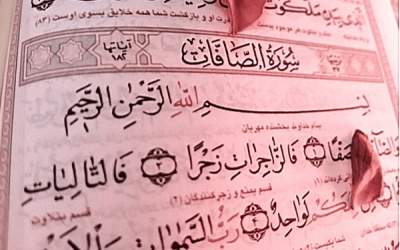 قدرت او و بازگشت شما همه خلایق بسوی اوست (۸۳)
آیاتها ۱۸۲ سُورَةُ الصَّافَّات
بِسْمِ اللَّهِ الرَّحْمَٰنِ الرَّحِيمِ
بنام خداوند بخشنده مهربان
صَفًّا ۱ فَالزَّاجِرَاتِ زَجْرًا ۲ فَالتَّالِيَاتِ
قسم بمنع و زجر کنندگان (۲) قسم بتلاوت
لَوَاحِدٌ ۴ رَبُّ السَّمَوَاتِ وَالْأَ